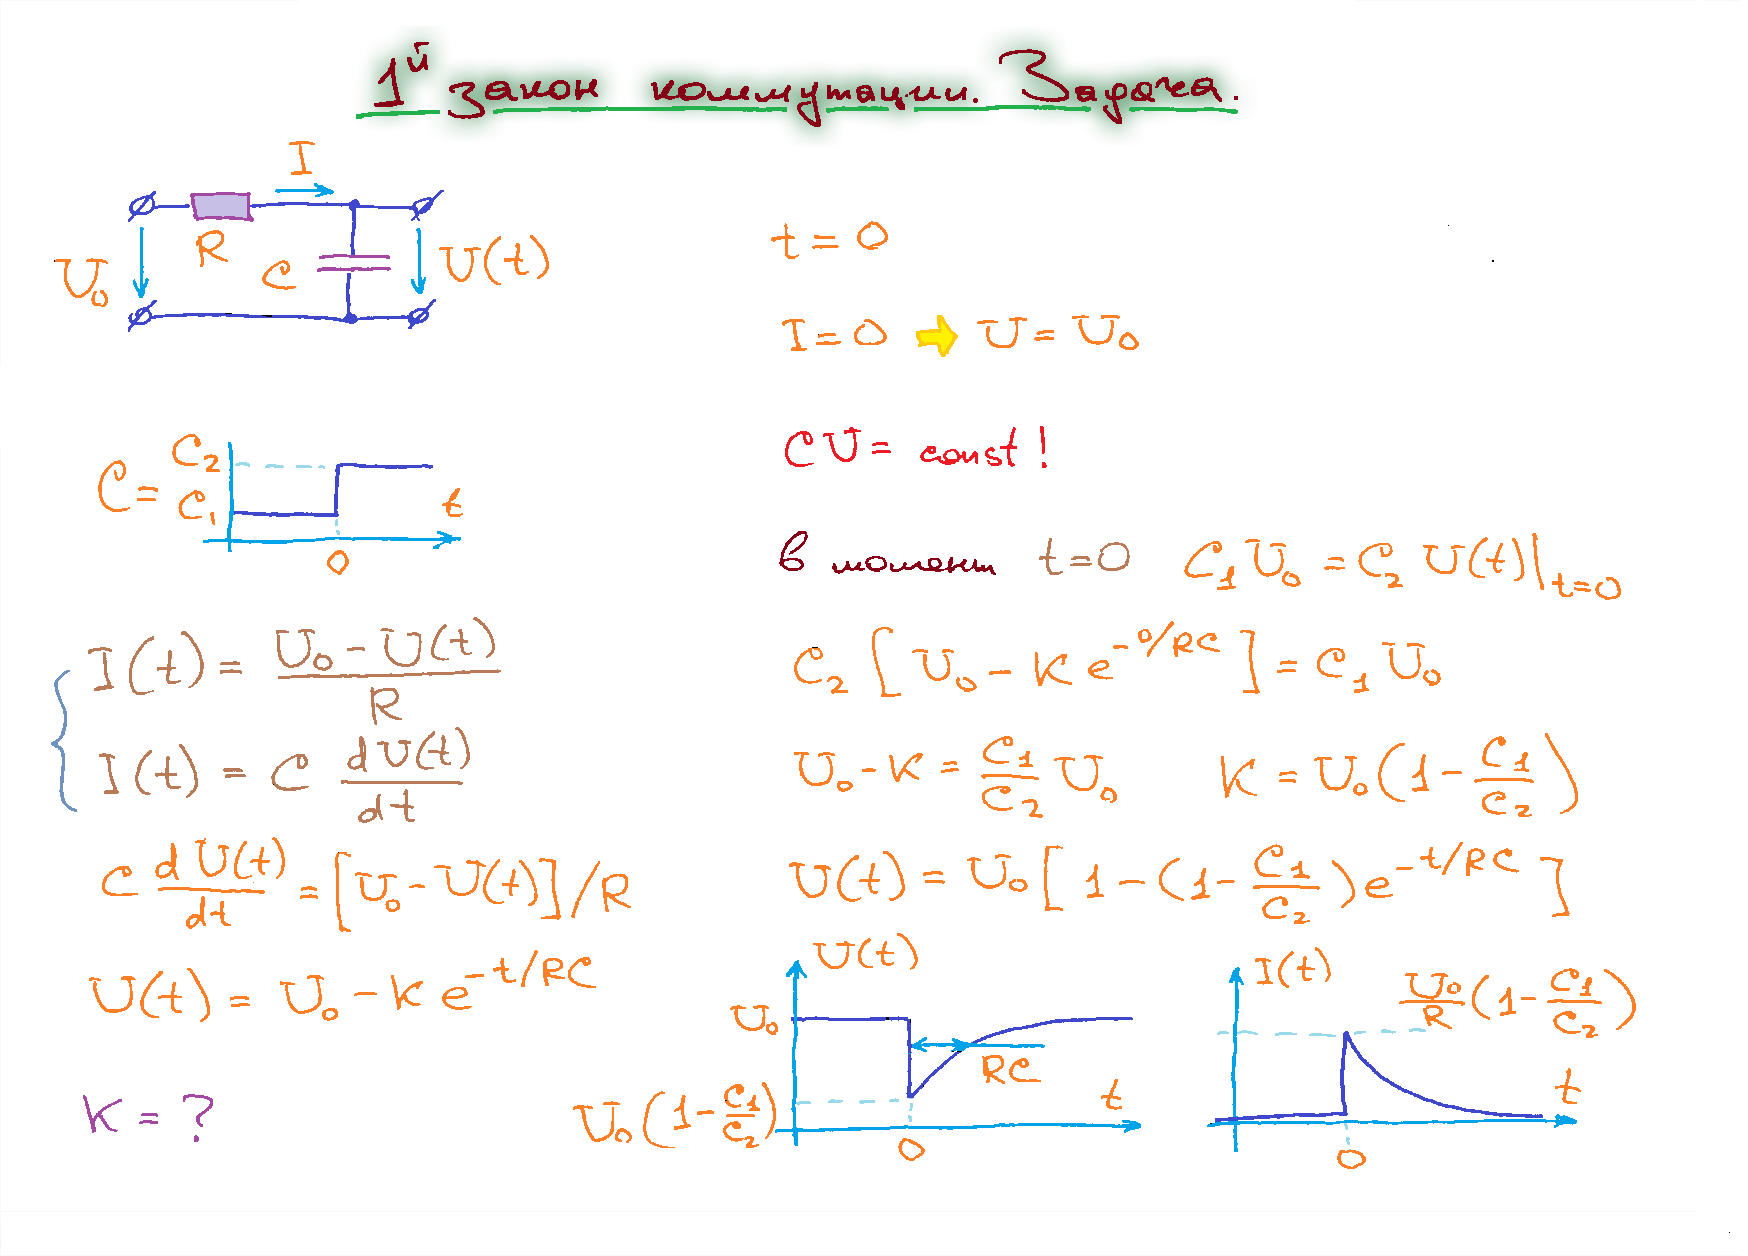 1й закон коммутации. Задача.
I
R
C
U₀
U(t)
C =
C₂
C₁
t
0
I(t) = (U₀ - U(t)) / R
I(t) = C dU(t)/dt
C dU(t)/dt = [U₀ - U(t)]/R
U(t) = U₀ - K e^(-t/RC)
K = ?
t = 0
I = 0 ➡ U = U₀
CU = const!
в момент t=0 C₁U₀ = C₂ U(t)|t=0
C₂ [U₀ - K e^(-0/RC)] = C₁U₀
U₀ - K = C₁/C₂ U₀ K = U₀(1 - C₁/C₂)
U(t) = U₀[1 - (1 - C₁/C₂)e^(-t/RC)]
U(t)
U₀
RC
U₀(1 - C₁/C₂)
t
0
I(t)
U₀/R (1 - C₁/C₂)
t
0